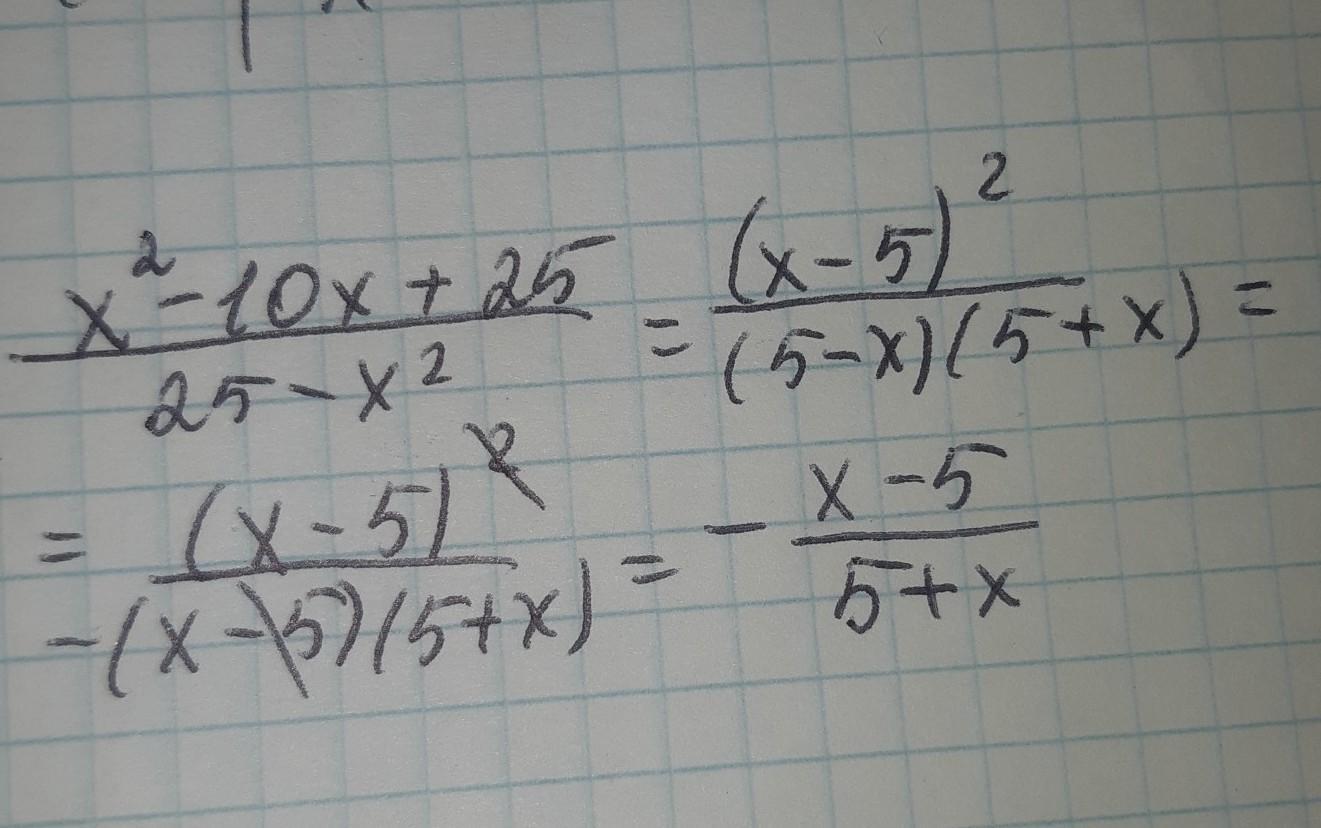 x² - 10x + 25 / 25 - x² = (x - 5)² / (5 - x)(5 + x) =
= (x - 5)² / -(x - 5)(5 + x) = - x - 5 / 5 + x